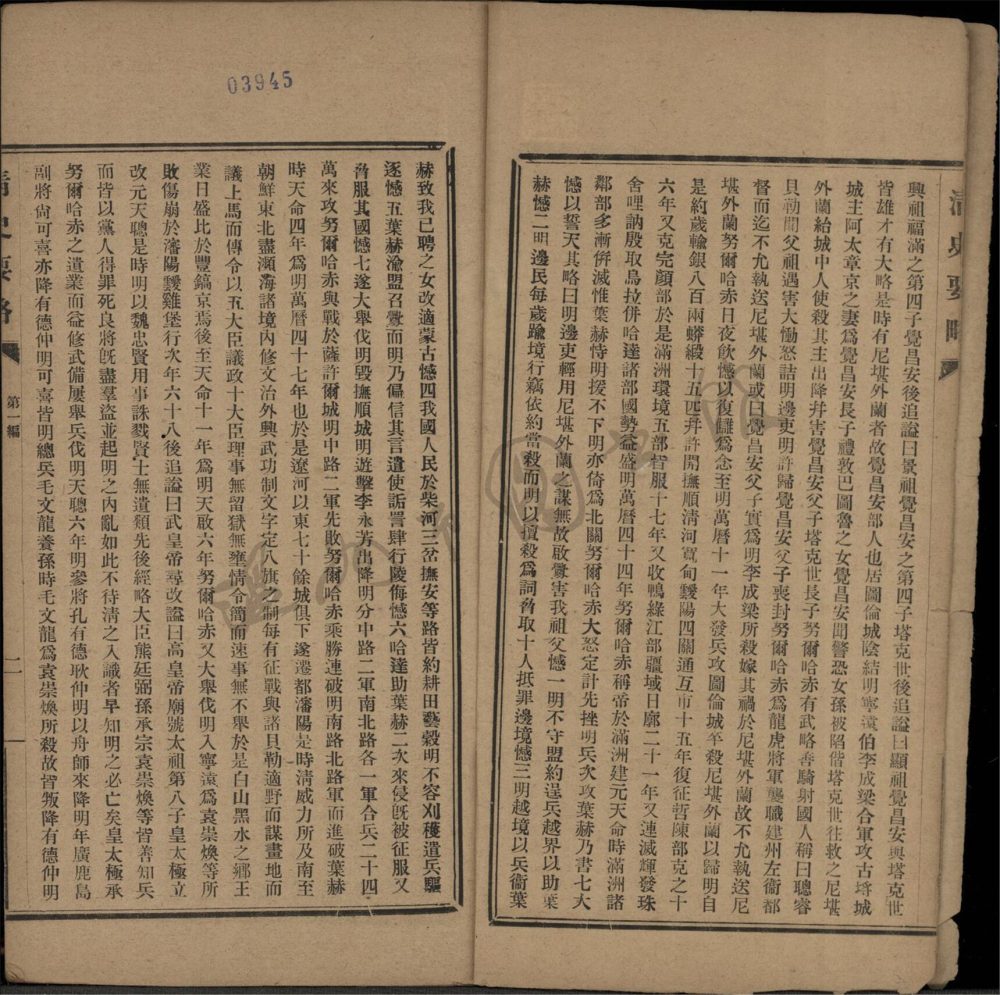 03945
清史要略
興祖福滿之第四子覺昌安後追謚曰景祖覺昌安之第四子塔克世後追謚曰顯祖覺昌安與塔克世
皆雄才有大略是時有尼堪外蘭者故覺昌安部人也居圖倫城陰結明寧遠伯李成梁合軍攻古埒城
城主阿太章京之妻爲覺昌安長子禮敦巴圖魯之女覺昌安聞警恐女孫被陷偕塔克世往救之尼堪
外蘭紿城中人使殺其主出降幷害覺昌安父子塔克世長子努爾哈赤有武略善騎射國人稱曰聰睿
貝勒聞父祖遇害大慟怒詰明邊吏明許歸覺昌安父子喪封努爾哈赤爲龍虎將軍襲職建州左衞都
督而迄不允執送尼堪外蘭或曰覺昌安父子實爲明李成梁所殺嫁其禍於尼堪外蘭故不允執送尼
堪外蘭努爾哈赤日夜飮憾以復讎爲念至明萬曆十一年大發兵攻圖倫城卒殺尼堪外蘭以歸明自
是約歲輸銀八百兩蟒緞十五匹幷許開撫順淸河寬甸靉陽四關通互市十五年復征哲陳部克之十
六年又克完顏部於是滿洲環境五部皆服十七年又收鴨綠江部疆域日廓二十一年又連滅輝發珠
舍哩訥殷取烏拉併哈達諸部國勢益盛明萬曆四十四年努爾哈赤稱帝於滿洲建元天命時滿洲諸
鄰部多漸併滅惟葉赫恃明援不下明亦倚爲北關努爾哈赤大怒定計先挫明兵次攻葉赫乃書七大
憾以誓天其略曰明邊吏輕用尼堪外蘭之謀無故啟釁害我祖父憾一明不守盟約逞兵越界以助葉
赫憾二明邊民每歲踰境行竊依約當殺而明以擅殺爲詞脅取十人抵罪邊境憾三明越境以兵衞葉
赫致我已聘之女改適蒙古憾四我國人民於柴河三岔撫安等路皆約耕田藝穀明不容刈穫遣兵驅
逐憾五葉赫渝盟召釁而明乃偏信其言遺使詬詈肆行陵侮憾六哈達助葉赫二次來侵旣被征服又
脅服其國憾七遂大舉伐明毀撫順城明遊擊李永芳出降明分中路二軍南北路各一軍合兵二十四
萬來攻努爾哈赤與戰於薩許爾城明中路二軍先敗努爾哈赤乘勝連破明南路北路軍而進破葉赫
時天命四年爲明萬曆四十七年也於是遼河以東七十餘城俱下遂遷都瀋陽是時淸威力所及南至
朝鮮東北盡瀕海諸境內修文治外興武功制文字定八旗之制每有征戰與諸貝勒適野而謀畫地而
議上馬而傳令以五大臣議政十大臣理事無留獄無壅情令簡而速事無不舉於是白山黑水之鄉王
業日盛比於豐鎬京焉後至天命十一年爲明天啟六年努爾哈赤又大舉伐明入寧遠爲袁崇煥等所
敗傷崩於瀋陽靉雞堡行次年六十八後追謚曰武皇帝尋改謚曰高皇帝廟號太祖第八子皇太極立
改元天聰是時明以魏忠賢用事誅戮賢士無遺類先後經略大臣熊廷弼孫承宗袁崇煥等皆善知兵
而皆以黨人得罪死良將旣盡羣盜並起明之內亂如此不待淸之入識者早知明之必亡矣皇太極承
努爾哈赤之遺業而益修武備屢舉兵伐明天聰六年明參將孔有德耿仲明以舟師來降明年廣鹿島
副將尙可喜亦降有德仲明可喜皆明總兵毛文龍養孫時毛文龍爲袁崇煥所殺故皆叛降有德仲明
淸史要略
第一編
二